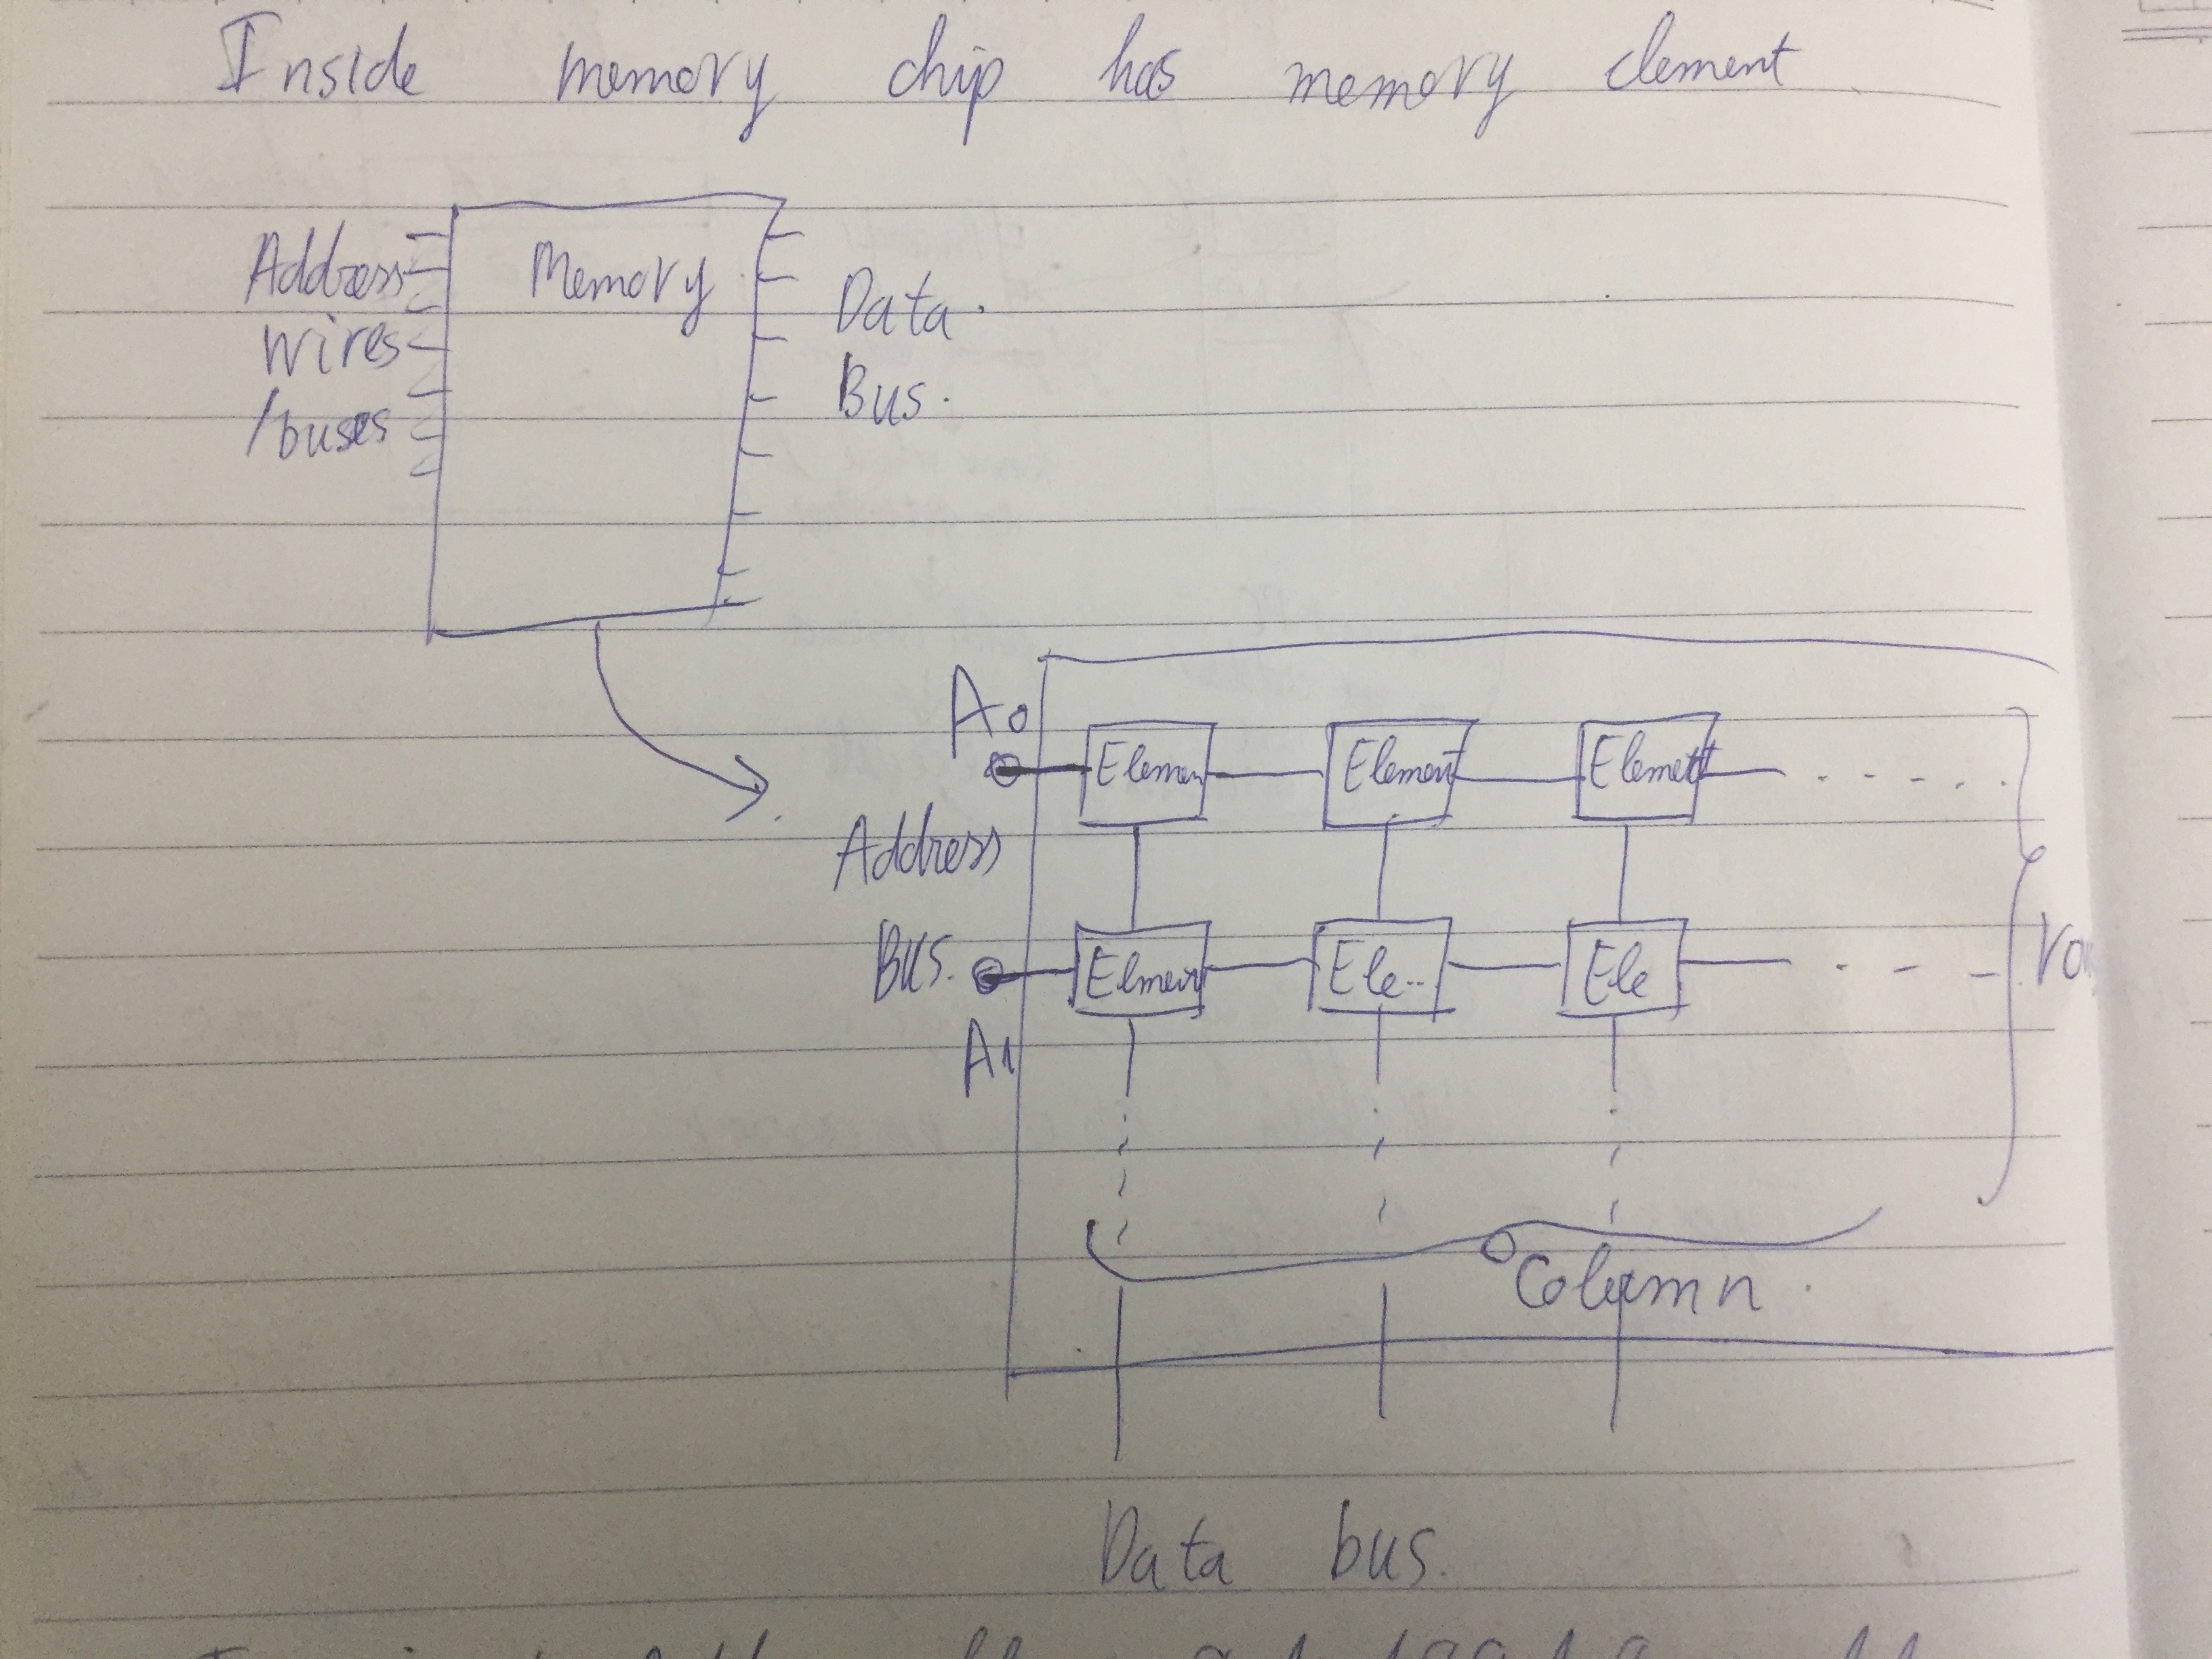 Inside memory chip has memory element
Address
wires
/buses
Memory
Data
Bus.
A0
Elemen
Element
Element
Address
Bus.
A1
Elment
Ele..
Ele
Column
Data bus.